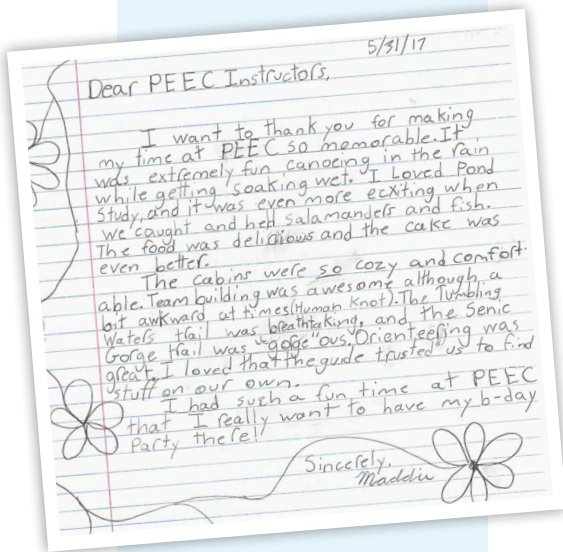 5/31/17
Dear PEEC Instructors,
I want to thank you for making
my time at PEEC so memorable. It
was extremely fun canoeing in the rain
while getting soaking wet. I Loved Pond
Study, and it was even more ecxiting when
we caught and held salamanders and fish.
The food was deligious and the cake was
even better.
The cabins were so cozy and comfort-
able. Team building was awesome although a
bit awkward at times (Human Knot). The Tumbling
Waters trail was breathtaking, and the Senic
Gorge trail was "gorge"ous. Orienteering was
great, I loved that the guide trusted us to find
stuff on our own.
I had such a fun time at PEEC
that I really want to have my b-day
Party there!
Sincerely,
Maddie